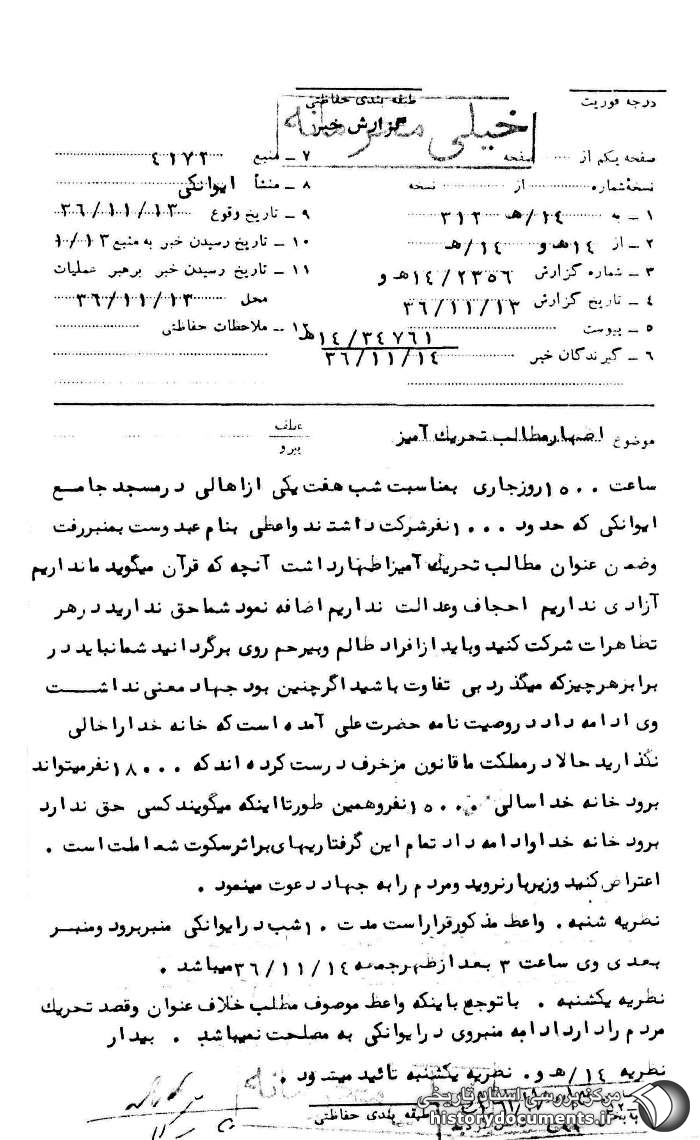 درجه فوریت
طبقه بندی حفاظتی
گزارش خبر
خیلی محرمانه
صفحه یکم از صفحه
نسخهٔ شماره از نسخه
۱ ـ به ۱۴/هـ ۳۱۲
۲ ـ از ۱۴هـ و ۱۴/هـ
۳ ـ شماره گزارش ۱۴/۲۳۵۶هـ و
۴ ـ تاریخ گزارش ۳۶/۱۱/۱۳
۵ ـ پیوست
۶ ـ گیرندگان خبر
۷ ـ منبع ۴۱۷۲
۸ ـ منشأ ایوانکی
۹ ـ تاریخ وقوع ۳۶/۱۱/۱۳
۱۰ ـ تاریخ رسیدن خبر به منبع ۱/۱۳
۱۱ ـ تاریخ رسیدن خبر برهبر عملیات
محل ۳۶/۱۱/۱۳
۱۲ ـ ملاحظات حفاظتی
۱۴/۳۴۷۶۱هـ
۳۶/۱۱/۱۴
موضوع اظهارمطالب تحریک آمیز
عطف
پیرو
ساعت ۱۵۰۰روزجاری بمناسبت شب هفت یکی ازاهالی درمسجد جامع
ایوانکی که حدود ۱۰۰۰نفرشرکت داشتند واعظی بنام عبدوست بمنبررفت
وضمن عنوان مطالب تحریک آمیزاظهارداشت آنچه که قرآن میگوید مانداریم
آزادی نداریم احجاف وعدالت نداریم اضافه نمود شماحق ندارید درهر
تظاهرات شرکت کنید وباید ازافراد ظالم وبیرحم روی برگردانید شمانباید در
برابرهرچیزکه میگذرد بی تفاوت باشید اگرچنین بود جهاد معنی نداشت
وی ادامه داد دروصیت نامه حضرت علی آمده است که خانه خداراخالی
نگذارید حالا درمملکت ماقانون مزخرف درست کرده اندکه ۱۸۰۰۰نفرمیتواند
برود خانه خداسالی ۱۵۰۰۰نفروهمین طورتااینکه میگویندکسی حق ندارد
برود خانه خداوادامه داد تمام این گرفتاریهای براثرسکوت شماملت است .
اعتراض کنید وزیربارنروید ومردم رابه جهاد دعوت مینمود .
نظریه شنبه . واعظ مذکورقراراست مدت ۱۰شب درایوانکی منبربرود ومنبر
بعدی وی ساعت ۳ بعدازظهرجمعه ۳۶/۱۱/۱۴میباشد .
نظریه یکشنبه . باتوجع باینکه واعظ موصوف مطلب خلاف عنوان وقصد تحریک
مردم رادارد ادامه منبروی درایوانکی به مصلحت نمیباشد . بیدار
نظریه ۱۴/هـ و. نظریه یکشنبه تائید میشود .
طبقه بندی حفاظتی
مرکز بررسی اسناد تاریخی
historydocuments.ir